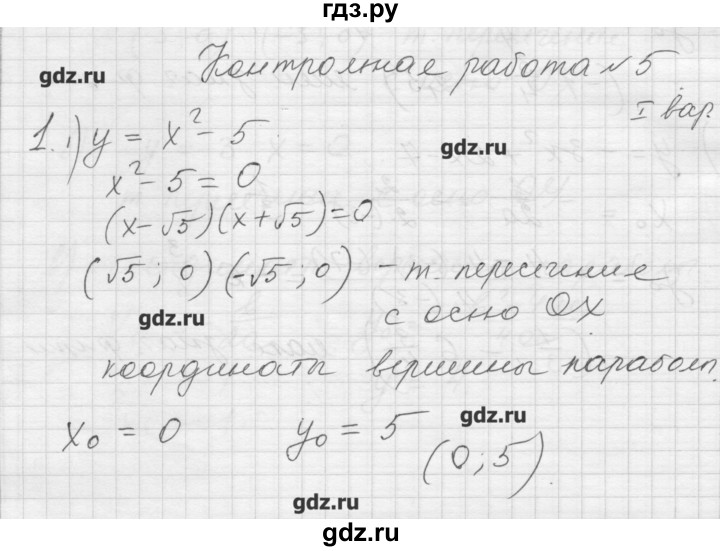 гдз.ру
Контрольная работа №5
gdz.ru
I вар.
1. 1) y = x² - 5
gdz.ru
x² - 5 = 0
(x - √5)(x + √5) = 0
(√5 ; 0) (-√5 ; 0) - т. пересечение
gdz.ru
с осью OX
координаты вершины парабол.
x₀ = 0 y₀ = 5 gdz.ru
(0 ; 5)
gdz.ru
gdz.ru